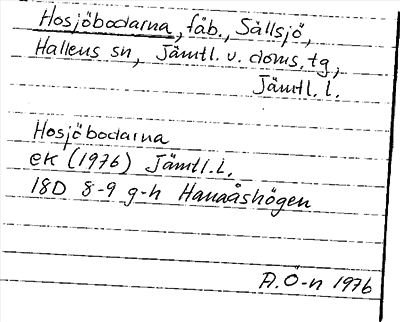 Hosjöbodarna, fäb., Sällsjö,
Hallens sn, Jämtl. v. doms. tg,
Jämtl. l.
Hosjöbodarna
ek (1976) Jämtl.l.
18D 8-9 g-h Hanaåshögen
A. Ö-n 1976